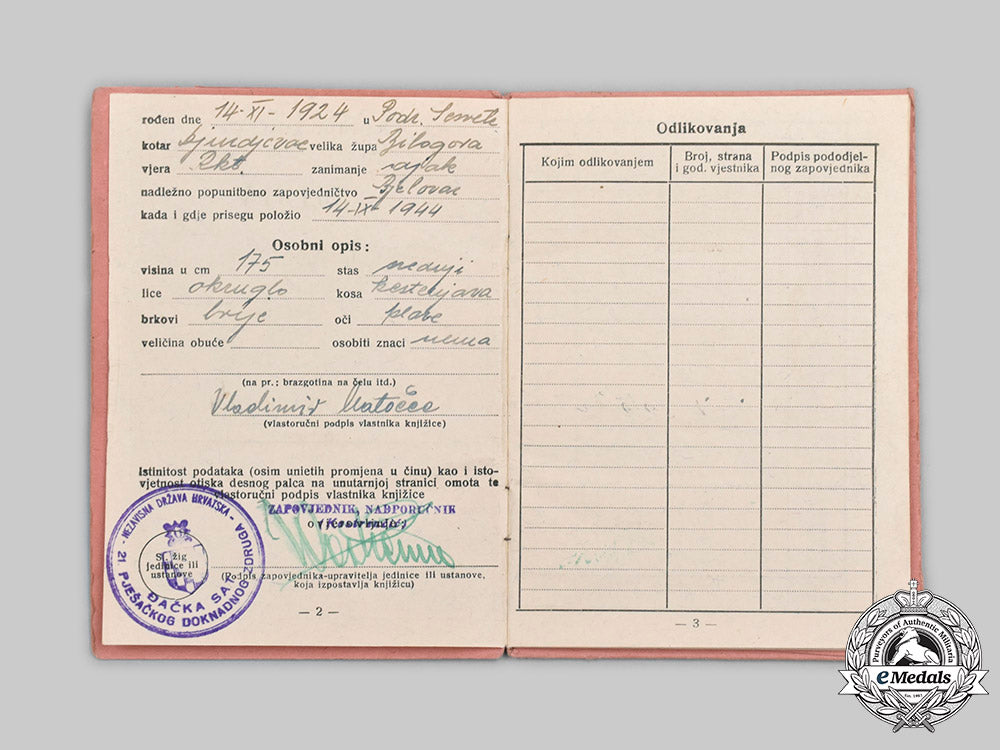 rođen dne 14-XI-1924 u Podr. Sesvete
kotar velika župa Bilogora
vjera Rkt. zanimanje
nadležno popunitbeno zapovjedničtvo Bjelovar
kada i gdje prisegu položio 14-IX-1944
Osobni opis:
visina u cm 175 stas srednji
lice okruglo kosa kestenjava
brkovi brije oči plave
veličina obuće osobiti znaci nema
(na pr.: brazgotina na čelu itd.)
Vladimir
(vlastoručni podpis vlastnika knjižice)
Istinitost podataka (osim unietih promjena u činu) kao i isto-
vjetnost otiska desnog palca na unutarnjoj stranici omota te
vlastoručni podpis vlastnika knjižice
ZAPOVJEDNIK, NADPORUČNIK
NEZAVISNA DRŽAVA HRVATSKA
21 PJEŠAČKOG DOKNADNOG ZDRUGA
ĐAČKA SAT
Služig
jedinice ili
ustanove
(Podpis zapovjednika-upravitelja jedinice ili ustanove,
koja izpostavlja knjižicu)
— 2 —
Odlikovanja
Kojim odlikovanjem
Broj, strana
i god. vjestnika
Podpis pododjel-
nog zapovjednika
— 3 —
Purveyors of Authentic Militaria
eMedals